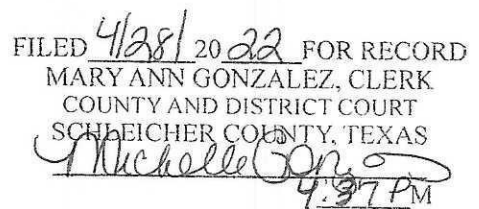 FILED 4/28/ 20 22 FOR RECORD
MARY ANN GONZALEZ, CLERK
COUNTY AND DISTRICT COURT
SCHLEICHER COUNTY, TEXAS
Michelle
4:37 PM